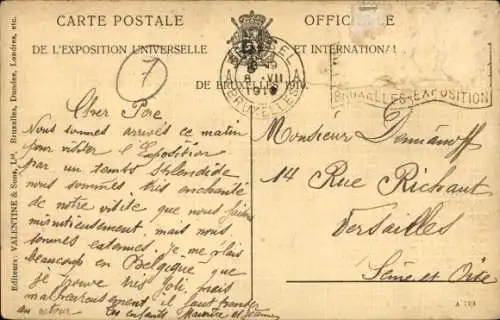 CARTE POSTALE OFFICIELLE
DE L'EXPOSITION UNIVERSELLE ET INTERNATIONALE
DE BRUXELLES 1910.
8 VII
1910
BRUXELLES
BRUXELLES-EXPOSITION
7
Cher Père
Nous sommes arrivés ce matin
pour visiter l'Exposition
par un temps splendide
nous sommes très enchanté
de notre visite que nous faisons
minutieusement, mais nous
sommes. Je me plais
beaucoup en Belgique que
je trouve très joli, mais
malheureusement il faut penser
au retour.
les enfants Maurice et Jeanne
Monsieur Demianoff
14 Rue Richaut
Versailles
Seine et Oise
Editeurs: VALENTINE & Sons, Ld., Bruxelles, Dundee, Londres, etc.